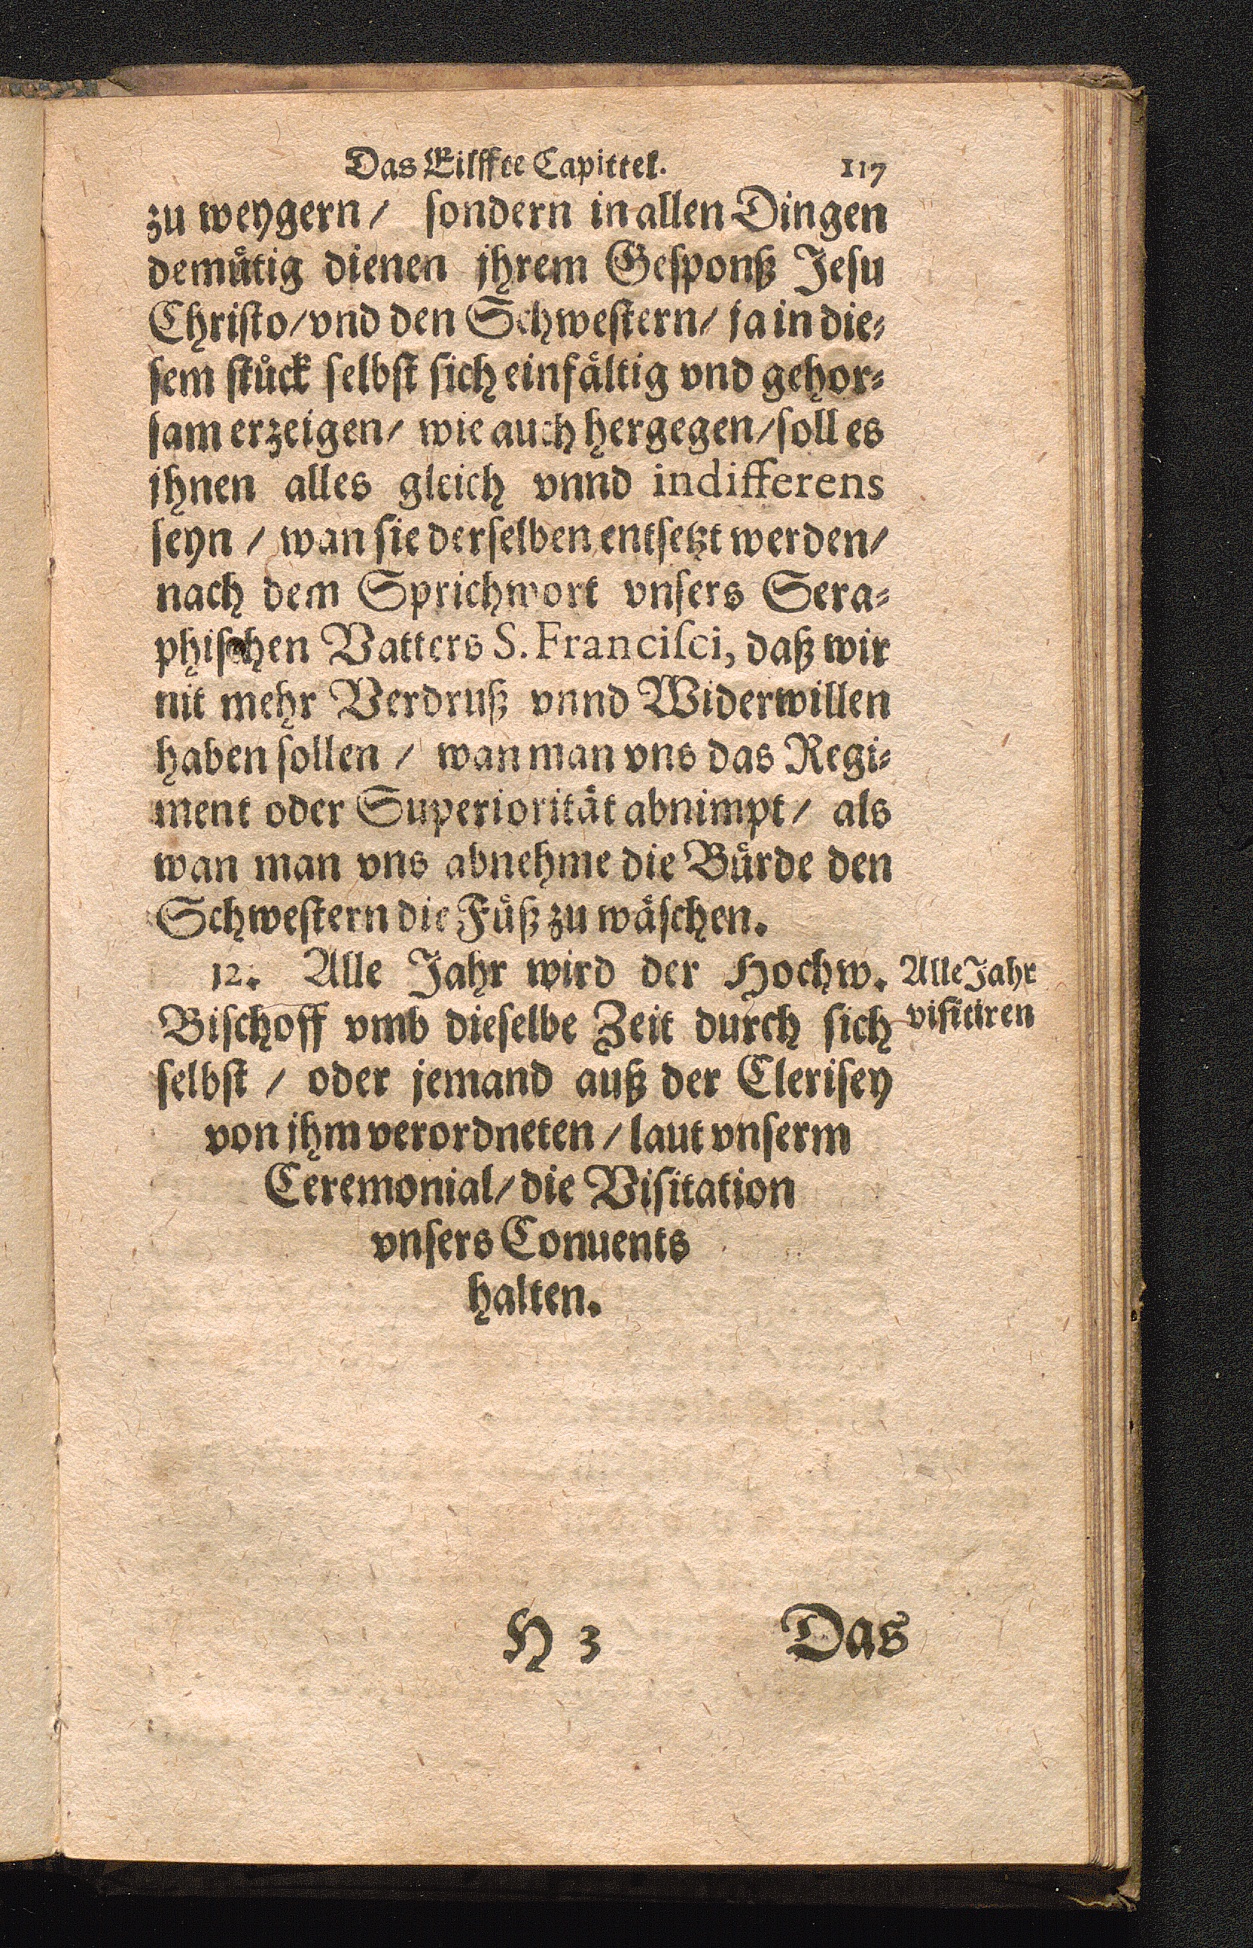 Das Eilffte Capittel. 117
zu weygern / sondern in allen Dingen
demuͤtig dienen jhrem Gesponß Jesu
Christo / vnd den Schwestern / ja in die⸗
sem stuͤck selbst sich einfaͤltig vnd gehor⸗
sam erzeigen / wie auch hergegen / soll es
jhnen alles gleich vnnd indifferens
seyn / wan sie derselben entsetzt werden /
nach dem Sprichwort vnsers Sera⸗
phischen Vatters S. Francisci, daß wir
nit mehr Verdruß vnnd Widerwillen
haben sollen / wan man vns das Regi⸗
ment oder Superioritaͤt abnimpt / als
wan man vns abnehme die Buͤrde den
Schwestern die Fuͤß zu waͤschen.
12. Alle Jahr wird der Hochw. Alle Jahr
Bischoff vmb dieselbe Zeit durch sich visitiren
selbst / oder jemand auß der Clerisey
von jhm verordneten / laut vnserm
Ceremonial / die Visitation
vnsers Conuents
halten.
H 3 Das